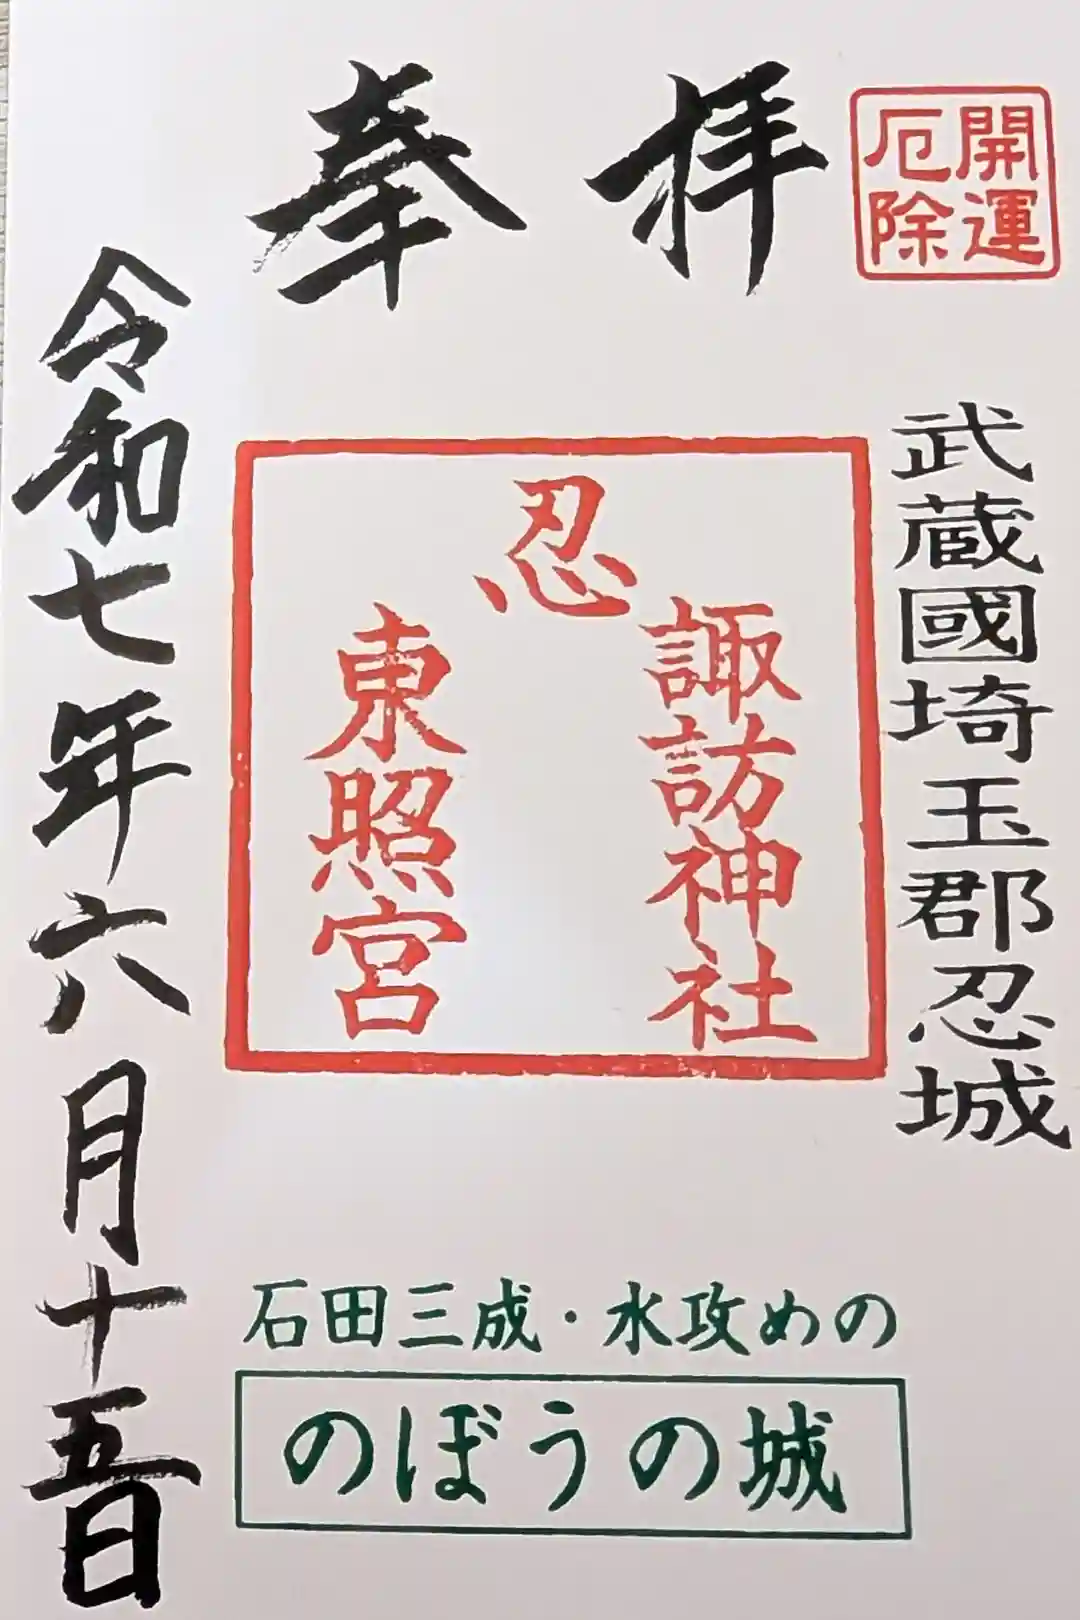 開運
厄除
奉拝
武蔵國埼玉郡忍城
忍
諏訪神社
東照宮
令和七年六月十五日
石田三成・水攻めの
のぼうの城